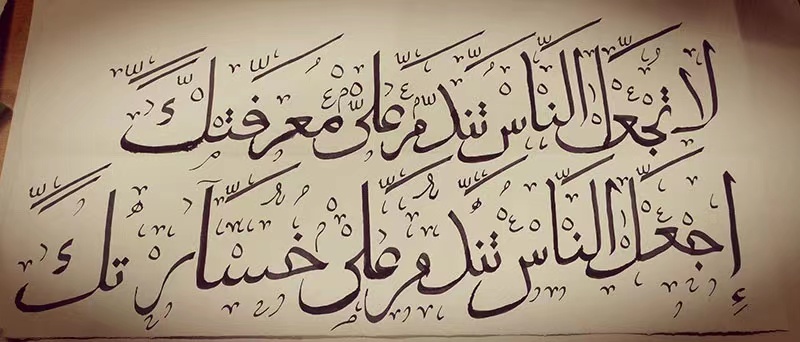 لا تجعل الناس تندم على معرفتك
إجعل الناس تندم على خسارتك